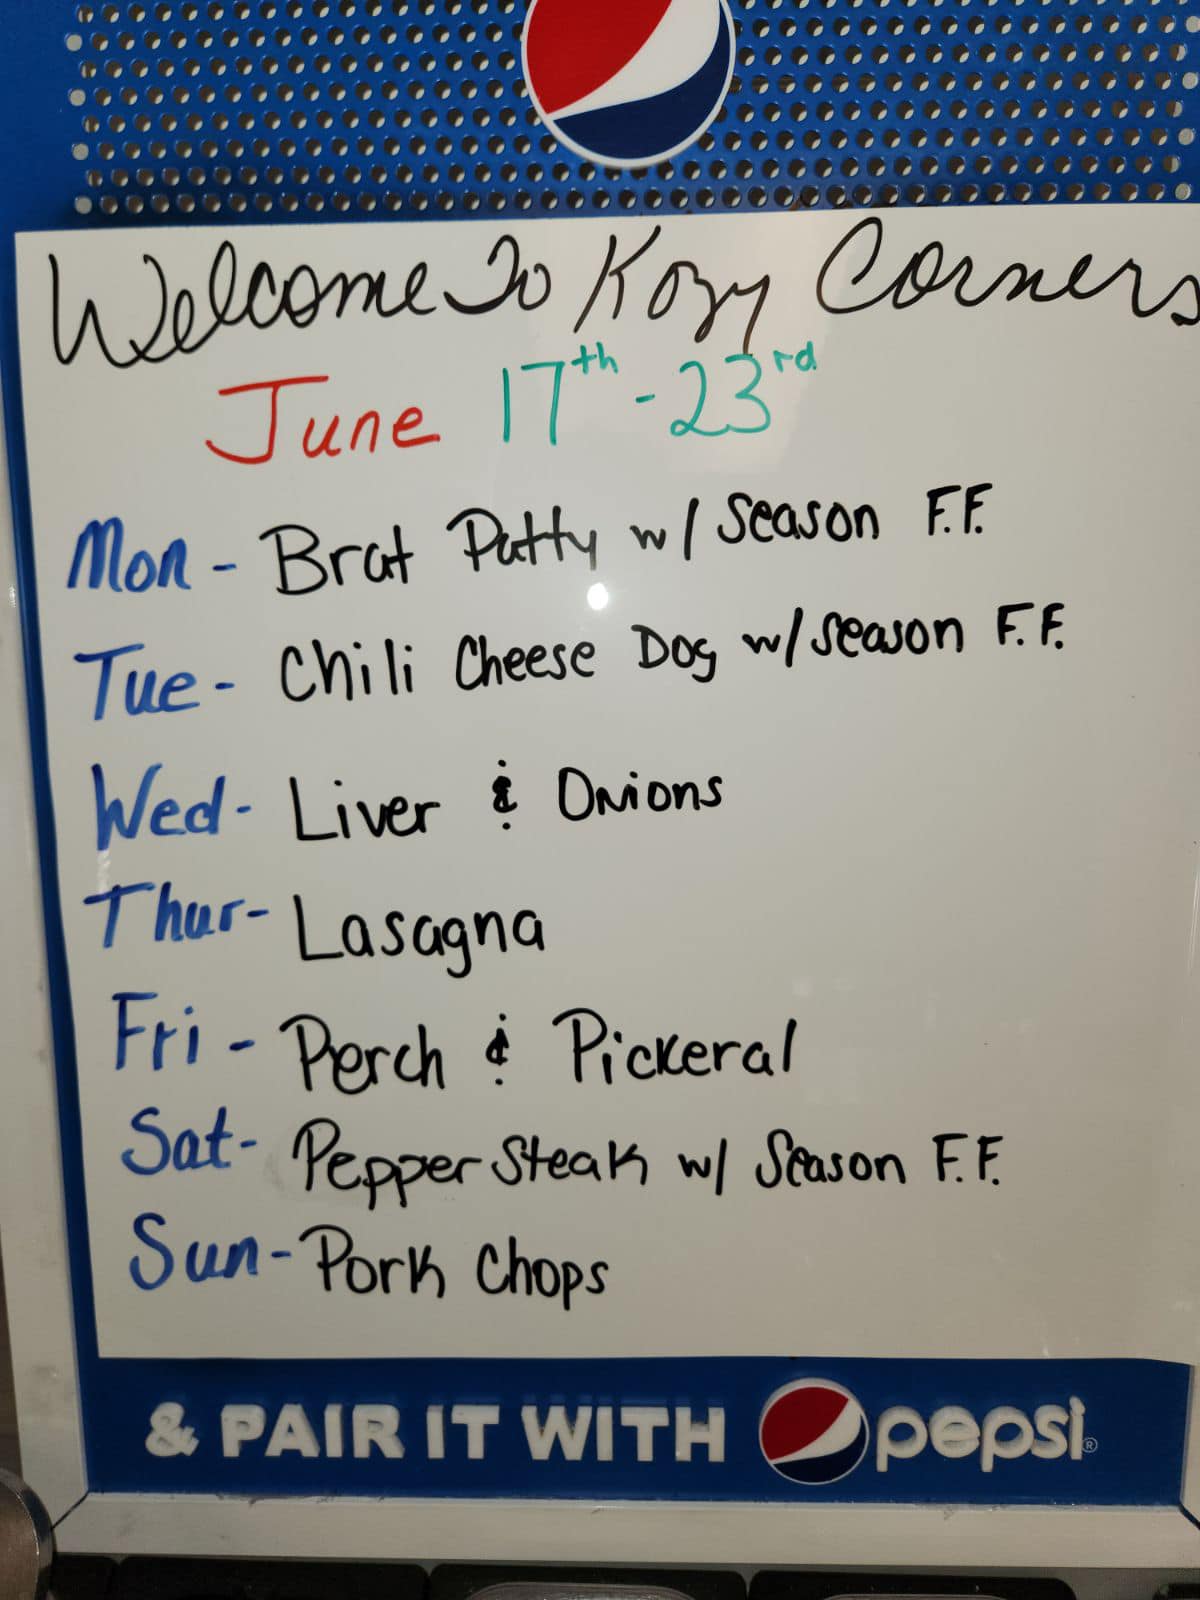 Welcome To Kozy Corners
June 17th - 23rd
Mon - Brat Patty w/ Season F.F.
Tue - Chili Cheese Dog w/ Season F.F.
Wed - Liver & Onions
Thur - Lasagna
Fri - Perch & Pickeral
Sat - Pepper Steak w/ Season F.F.
Sun - Pork Chops
& PAIR IT WITH pepsi®